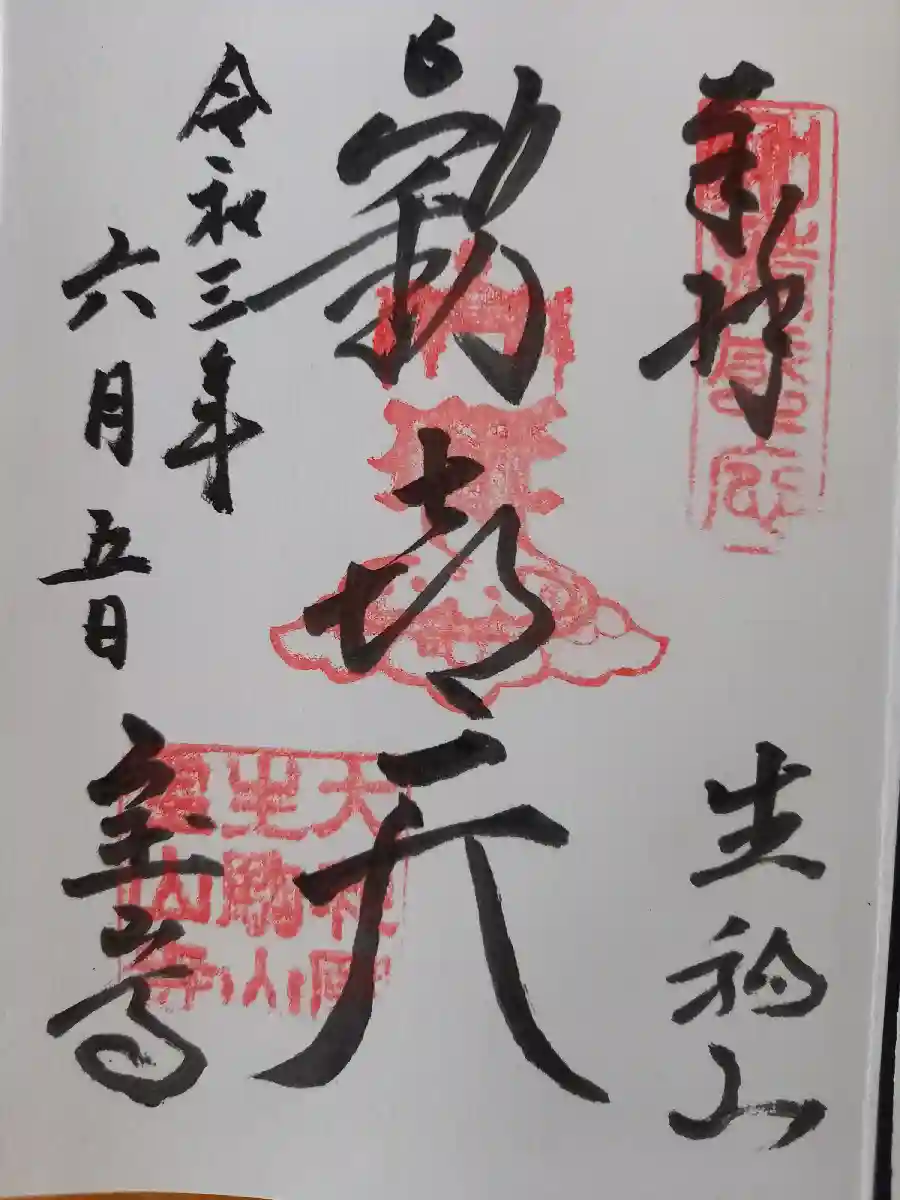 奉拝
生駒山
歓喜天
令和三年
六月五日
宝山寺
大和國
生駒山
寳山寺